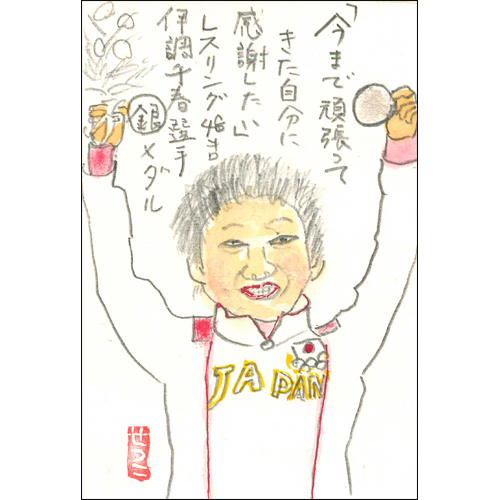 「今まで頑張って
きた自分に
感謝したい」
レスリング48㌔
伊調千春選手
銀メダル
JAPAN
せつこ